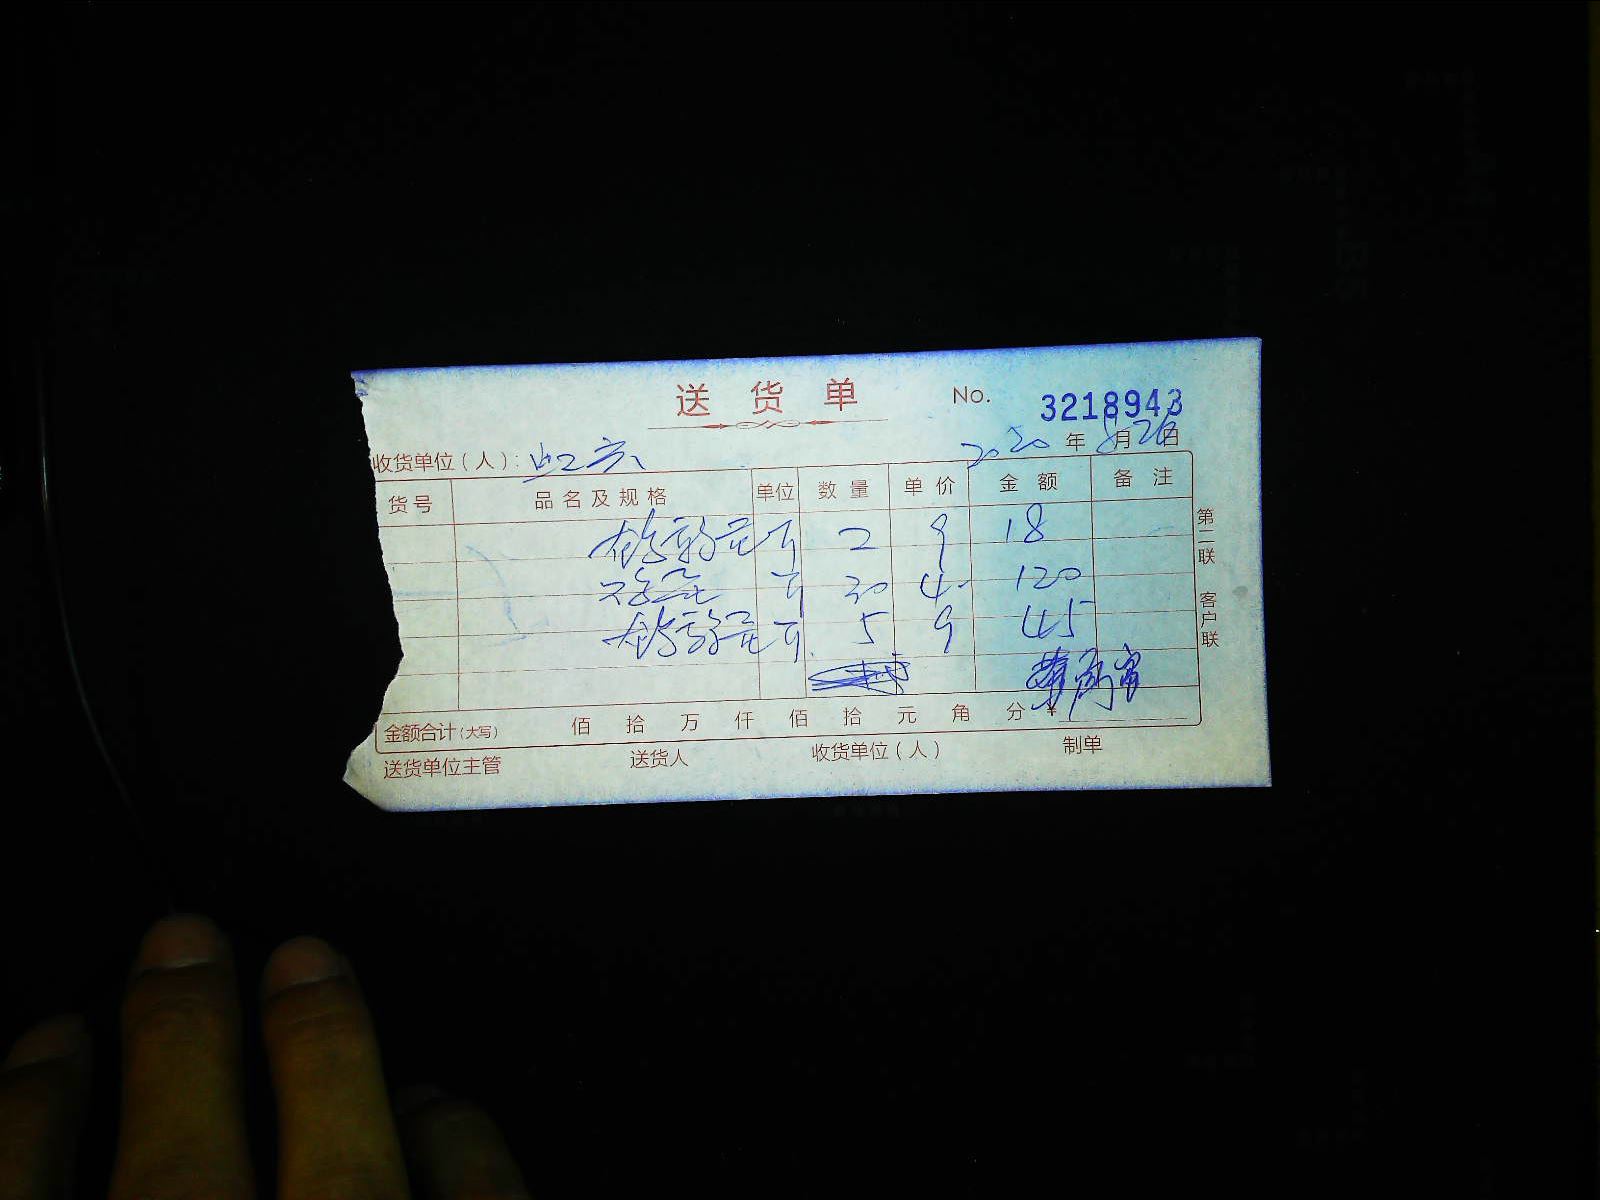 送货单 No. 3218943
收货单位（人）： 2020年8月26日
货号 品名及规格 单位 数量 单价 金额 备注
2 9 18
30 4- 120
5 9 45
金额合计（大写） 佰 拾 万 仟 佰 拾 元 角 分 ¥
送货单位主管 送货人 收货单位（人） 制单
第二联 客户联